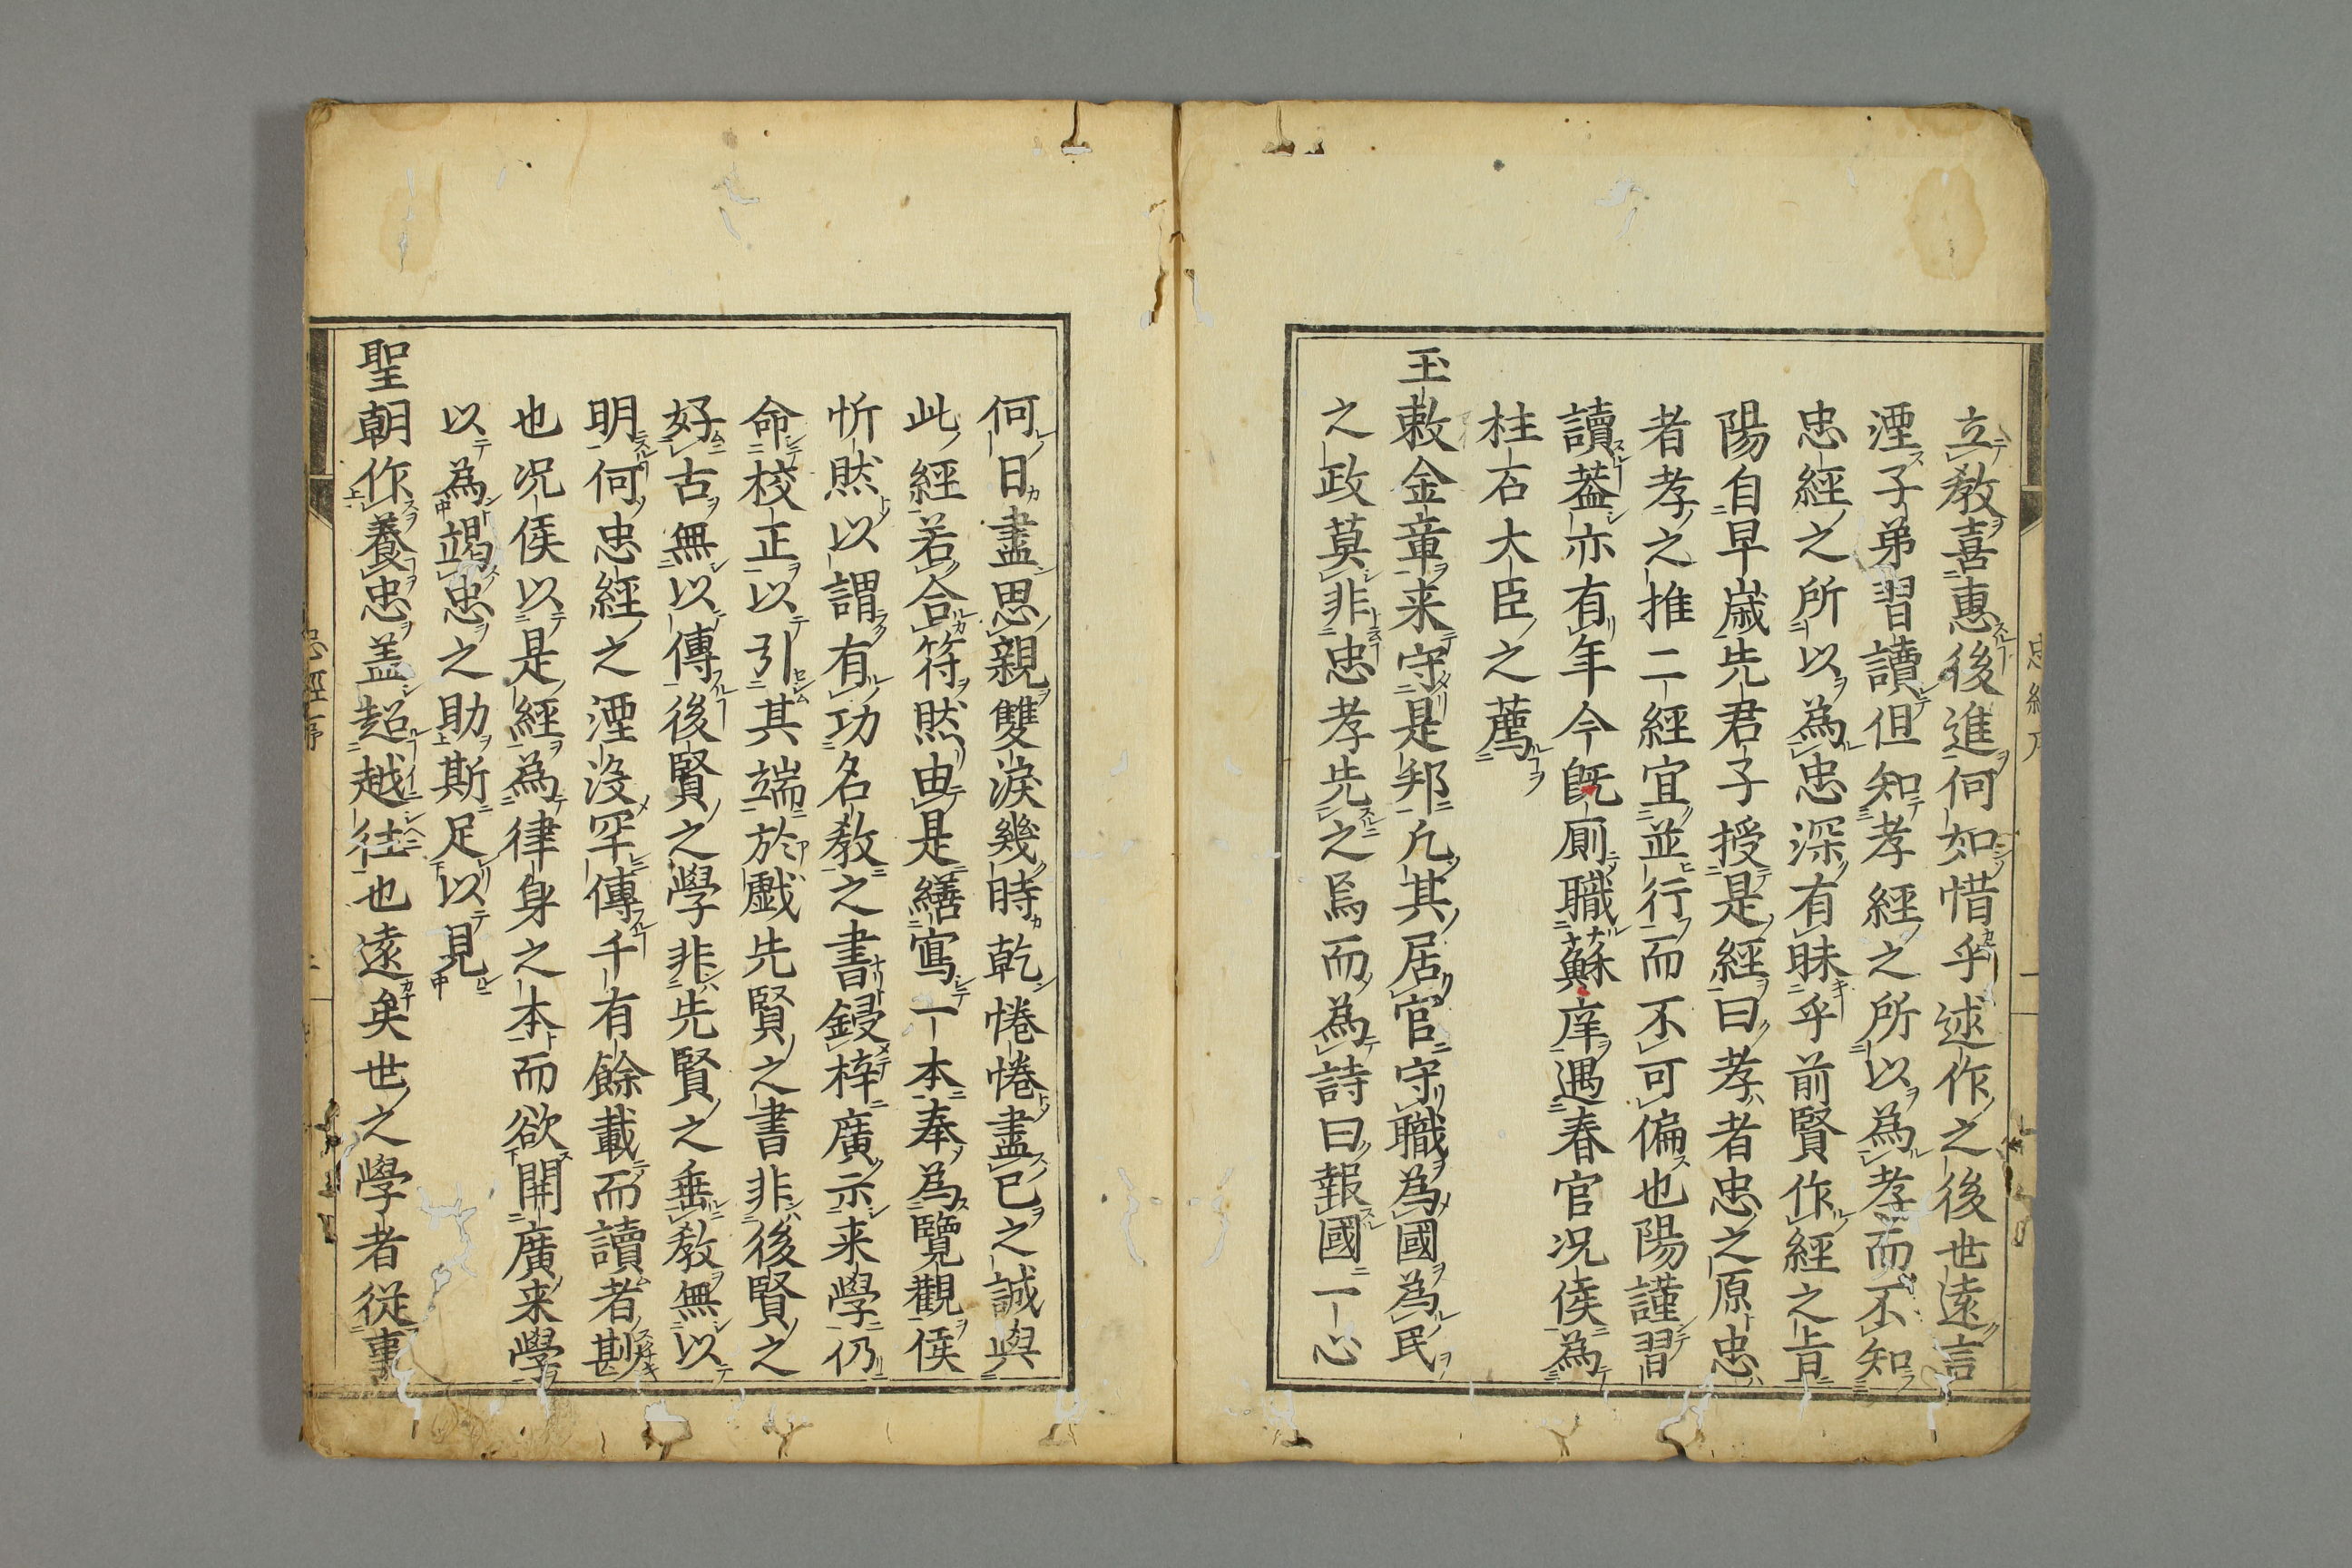 立教喜惠後進何如惜乎述作之後世遠言
湮子弟習讀但知孝經之所以為孝而不知
忠經之所以為忠深有昧乎前賢作經之旨
陽自早歲先君子授是經曰孝者忠之原忠
者孝之推二經宜並行而不可偏也陽謹習
讀蓋亦有年今旣廁職蘇庠遇春官況侯為
柱石大臣之薦
玉敕金章来守是邦凢其居官守職為國為民
之政莫非忠孝先之烏而為詩曰報國一心
何日盡思親雙淚幾時乾惓惓盡己之誠與
此經若合符然由是繕寫一本奉為覽觀侯
忻然以謂有功名教之書鋟梓廣示来學仍
命校正以引其端於戲先賢之書非後賢之
好古無以傳後賢之學非先賢之垂教無以
明何忠經之湮沒罕傳千有餘載而讀者尠
也况侯以是經為律身之本而欲開廣来學
以為竭忠之助斯足以見
聖朝作養忠盖超越徃也遠矣世之學者從事
忠經序